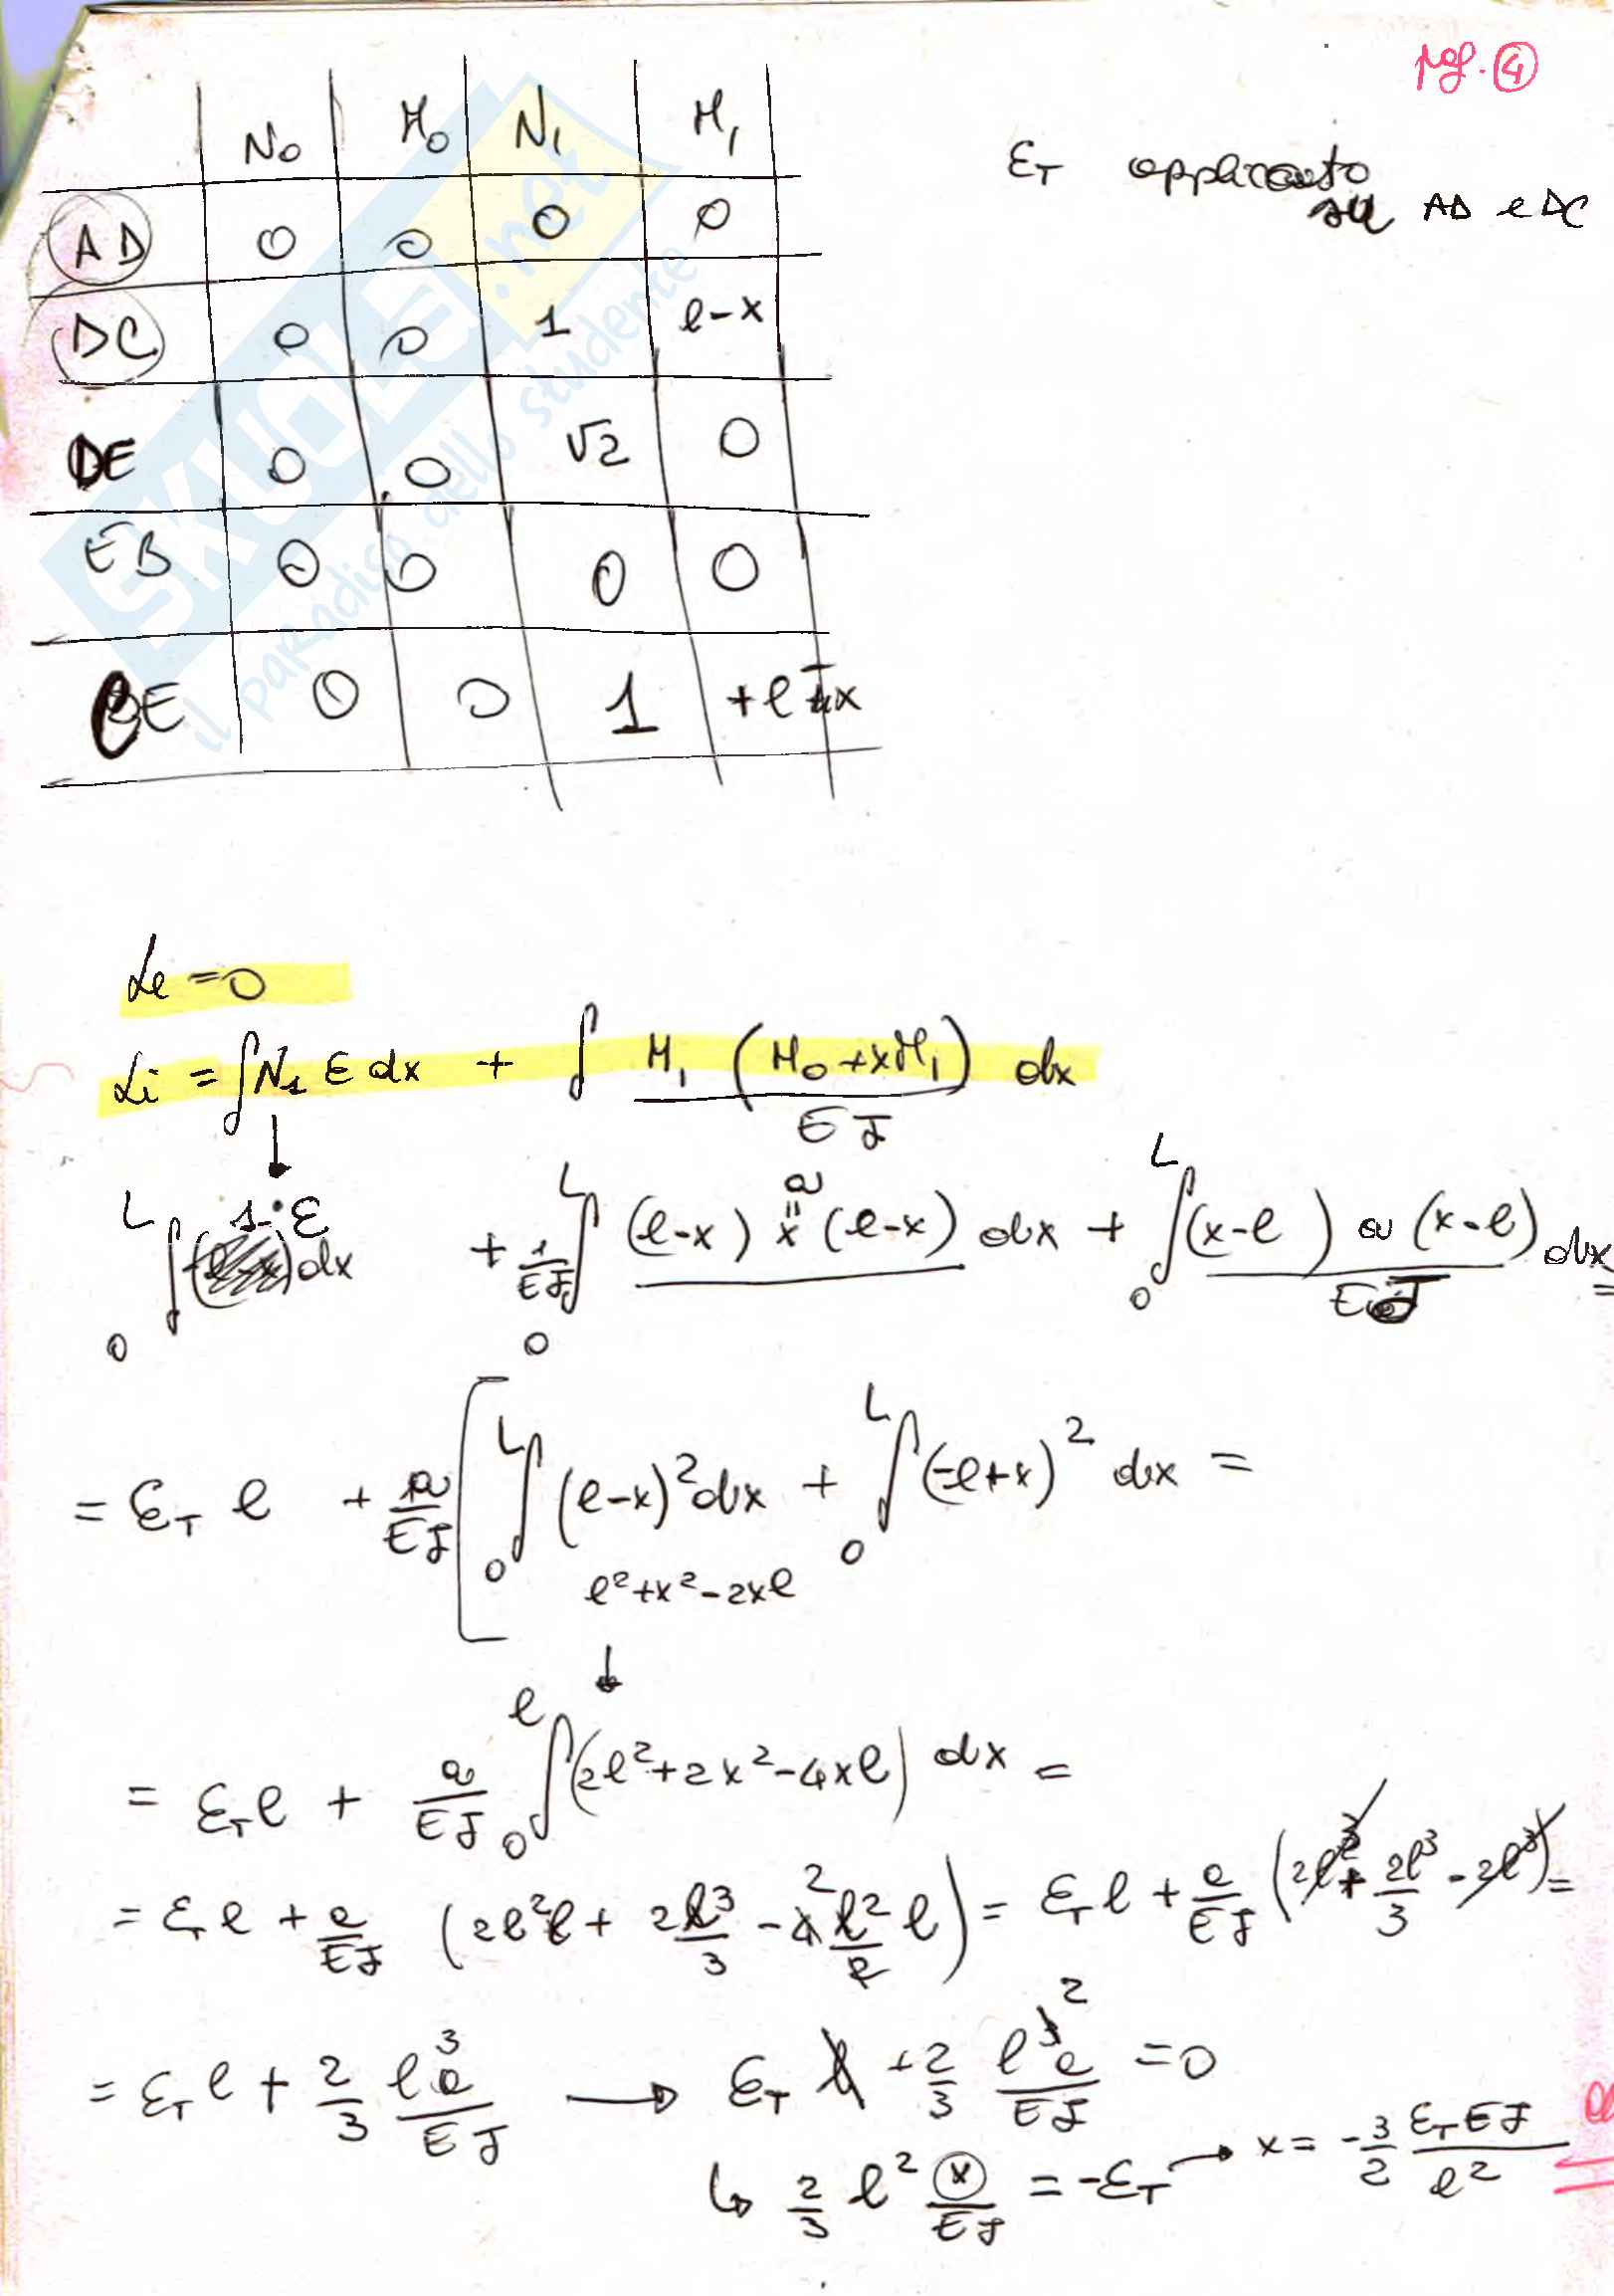 pag. 4
N₀ M₀ N₁ M₁
AD 0 0 0 0
DC 0 0 1 l-x
DE 0 0 √2 0
EB 0 0 0 0
CE 0 0 1 +l-x
ε_T applicato
su AD e DC
SKUOLA.net
il paradiso dello studente
Le = 0
Li = ∫N₁ ε dx + ∫ M₁ (M₀+xM₁)/EJ dx
∫₀ᴸ 1·ε dx + 1/EJ ∫₀ᴸ (l-x) x (l-x) dx + ∫₀ᴸ (x-l) a (x-l)/EJ dx =
a
"
= ε_T l + a/EJ [ ∫₀ᴸ (l-x)² dx + ∫₀ᴸ (-l+x)² dx =
l²+x²-2xl
= ε_T l + a/EJ ∫₀ˡ (2l²+2x²-4xl) dx =
= ε_T l + a/EJ (2l²l + 2l³/3 - 4 l²/2 l) = ε_T l + a/EJ (2l³ + 2l³/3 - 2l³) =
= ε_T l + 2/3 l³a/EJ → ε_T l + 2/3 l³a/EJ = 0
↳ 2/3 l² x/EJ = -ε_T → x = -3/2 ε_T EJ/l²